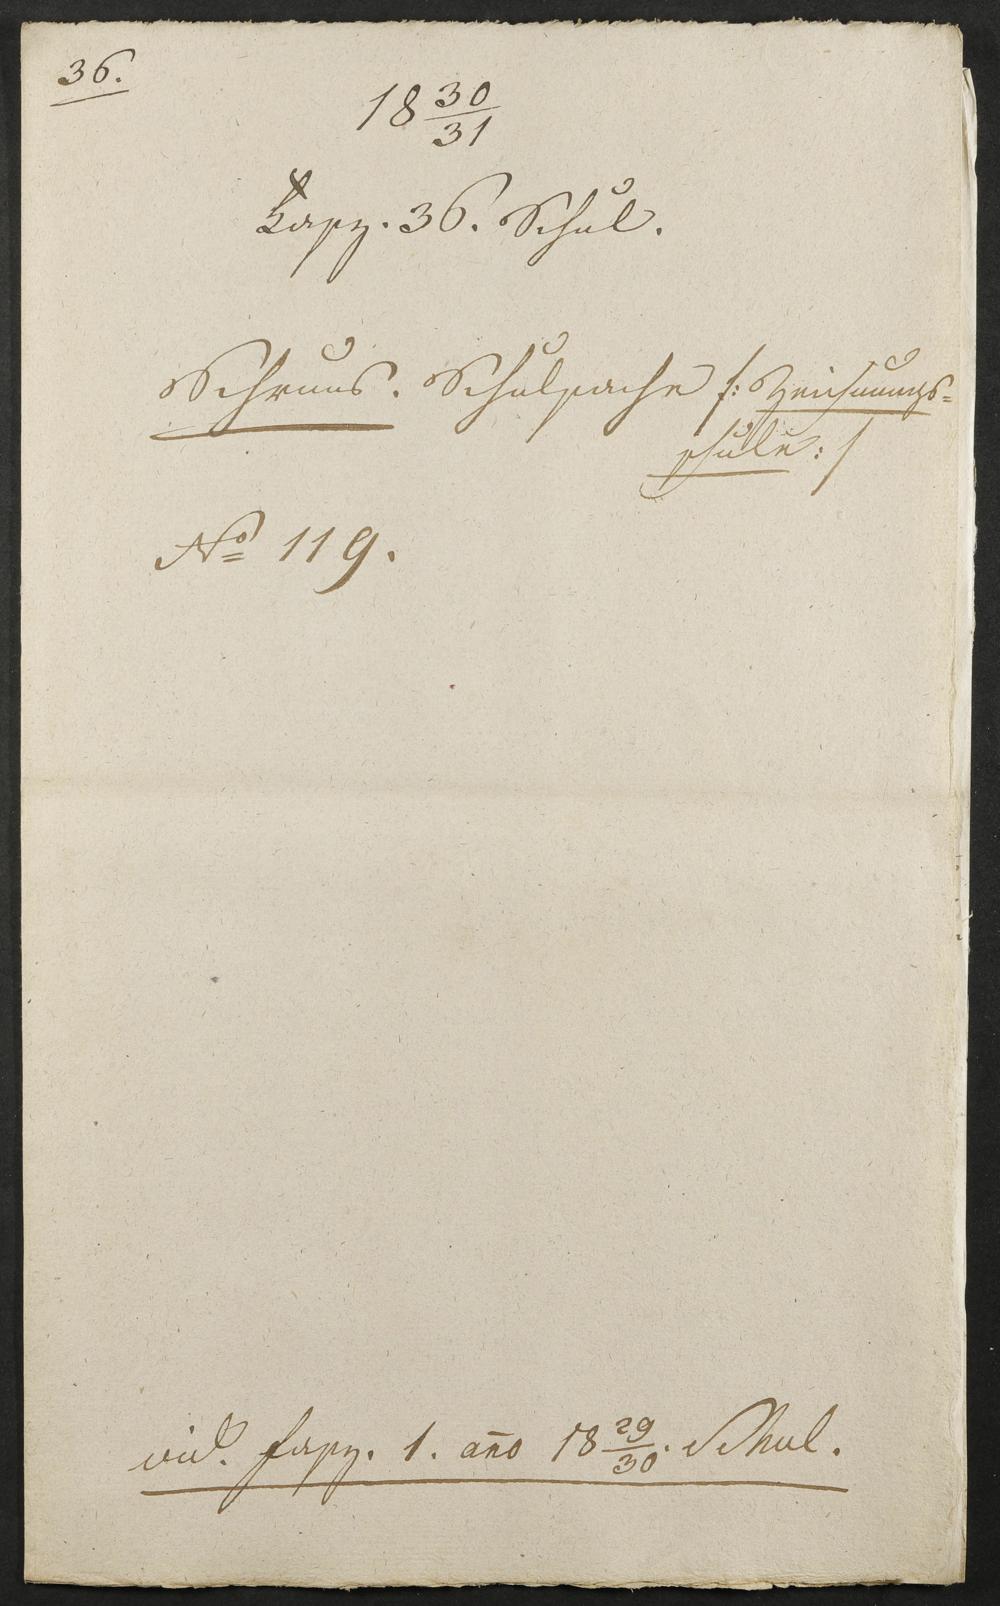 36.
18 30/31
Fasz. 36. Schul.
Schruns. Schulsache /: Zeichnungs=
schule :/
No 119.
vid. fasz. 1. año 18 29/30. Schul.